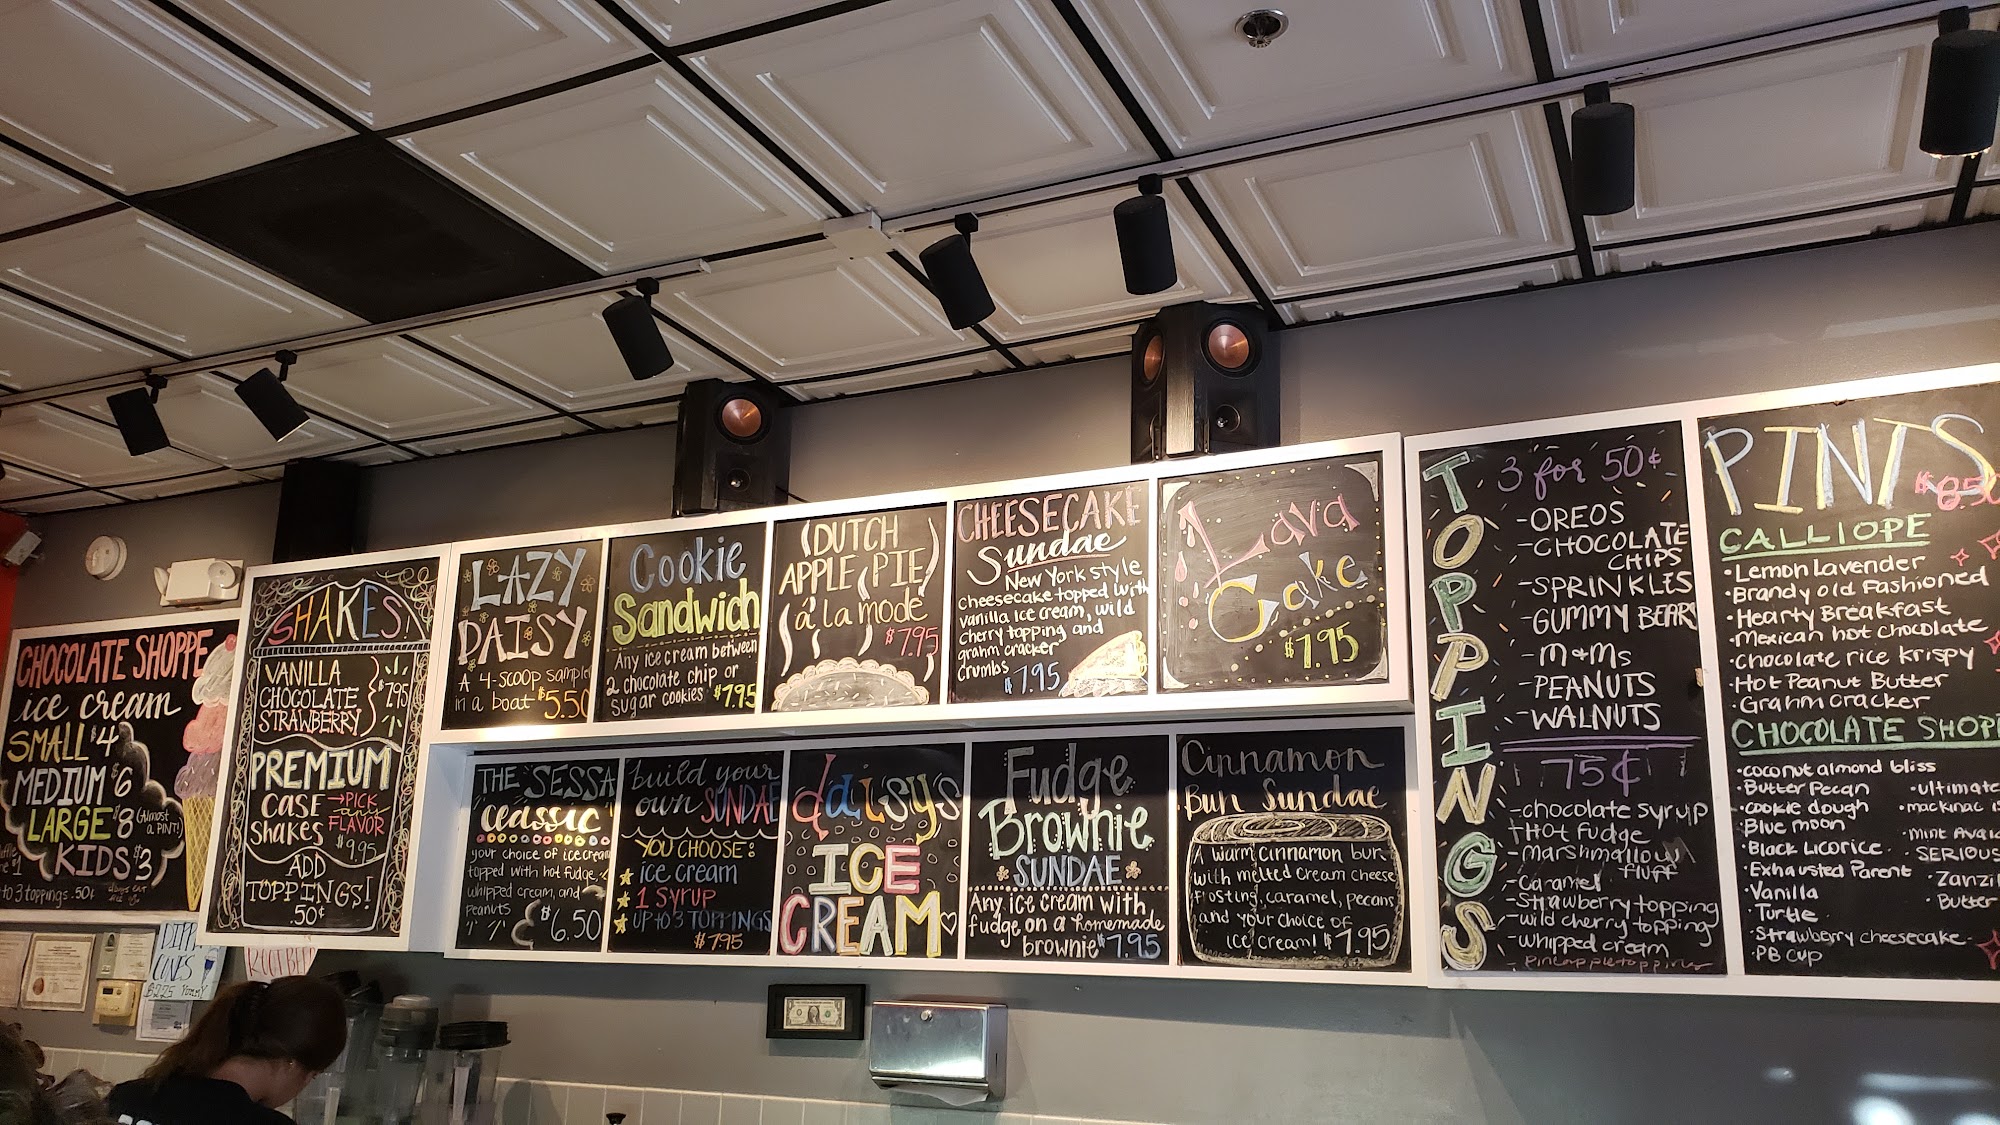 CHOCOLATE SHOPPE
ice cream
SMALL $4
MEDIUM $6
LARGE $8 (Almost
a PINT!)
KIDS $3
to 3 toppings .50¢
SHAKES
VANILLA
CHOCOLATE
STRAWBERRY
$7.95
PREMIUM
CASE → PICK
Shakes any
FLAVOR
$9.95
ADD
TOPPINGS!
.50¢
LAZY
DAISY
A 4-scoop sample
in a boat $5.50
Cookie
Sandwich
Any ice cream between
2 chocolate chip or
sugar cookies $7.95
DUTCH
APPLE PIE
á la mode
$7.95
CHEESECAKE
Sundae
New York style
cheesecake topped with
vanilla ice cream, wild
cherry topping and
grahm cracker
crumbs $7.95
Lava
Cake
$7.95
THE "SESSA"
classic
your choice of ice cream
topped with hot fudge,
whipped cream, and
peanuts
$6.50
build your
own SUNDAE
YOU CHOOSE:
ice cream
1 SYRUP
UP to 3 TOPPINGS
$7.95
daisys
ICE
CREAM
Fudge
Brownie
SUNDAE
Any ice cream with
fudge on a homemade
brownie $7.95
Cinnamon
Bun Sundae
A warm cinnamon bun
with melted cream cheese
frosting, caramel, pecans
and your choice of
ice cream! $7.95
TOPPINGS
3 for 50¢
-OREOS
-CHOCOLATE
CHIPS
-SPRINKLES
-GUMMY BEARS
-M+Ms
-PEANUTS
-WALNUTS
75¢
-chocolate syrup
+Hot fudge
-marshmallow
fluff
-Caramel
-Strawberry topping
-wild cherry topping
-whipped cream
-pineapple topping
PINTS
$8.50
CALLIOPE
·Lemon Lavender
·Brandy old Fashioned
·Hearty Breakfast
·Mexican hot chocolate
·Chocolate rice krispy
·Hot Peanut Butter
·Grahm cracker
CHOCOLATE SHOPP
·coconut almond bliss
·Butter Pecan
·cookie dough
·Blue moon
·Black Licorice
·Exhausted Parent
·Vanilla
·Turtle
·Strawberry cheesecake
·PB cup
·ultimate
·mackinac
·mint
·SERIOUS
·Zanzi
·Butter
CONES
ROOT BEER